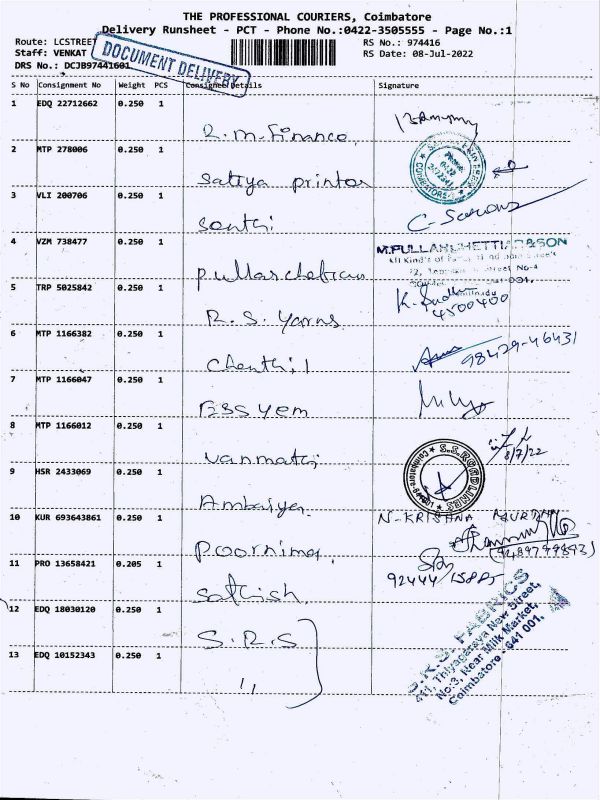 THE PROFESSIONAL COURIERS, Coimbatore
Delivery Runsheet - PCT - Phone No.:0422-3505555 - Page No.:1
Route: LCSTREET
RS No.: 974416
Staff: VENKAT
RS Date: 08-Jul-2022
DRS No.: DCJB97441601
DOCUMENT DELIVERY
S No Consignment No Weight PCS Consignee Details Signature
1 EDQ 22712662 0.250 1
R.M-Finance
2 MTP 278006 0.250 1
Sattya printos
3 VLI 200706 0.250 1
Senthi
C-Saravana
4 VZM 738477 0.250 1
M.PULLAIAH CHETTIAR & SON
5 TRP 5025842 0.250 1
R.S. Yarns
4500400
6 MTP 1166382 0.250 1
Chenthil
98429-46431
7 MTP 1166047 0.250 1
Essyem
8 MTP 1166012 0.250 1
Vanmathi
8/7/22
S.S.ROADLINES
9 HSR 2433069 0.250 1
Ambaiya
N-KRISHNA MURTHY
10 KUR 693643861 0.250 1
Poornima
11 PRO 13658421 0.205 1
Sathish
92444
12 EDQ 18030120 0.250 1
S.R.S
13 EDQ 10152343 0.250 1
"
S.R.S. FABRICS
411, Thiyagaraya New Street,
No:3, Near Milk Market,
Coimbatore - 641 001.